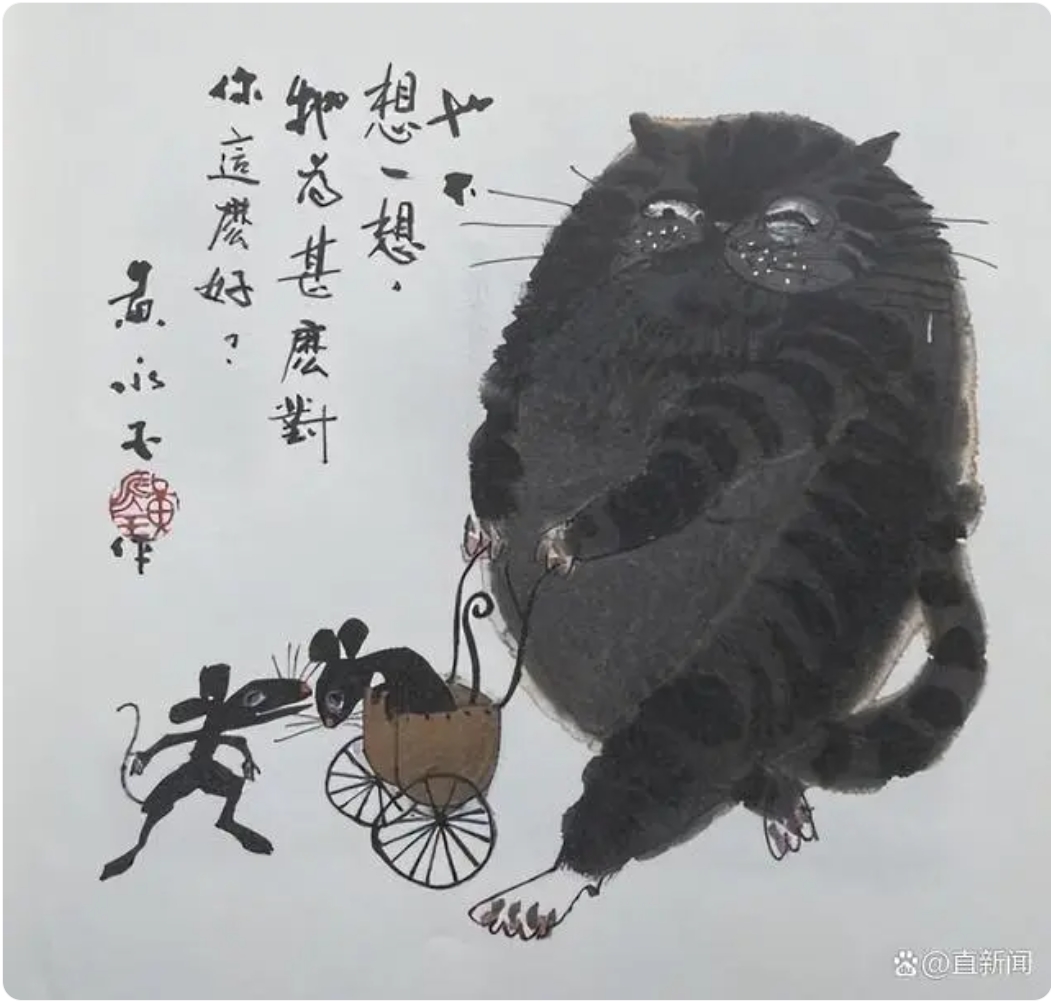 也不
想一想，
牠為甚麼對
你這麼好？
黃永玉
作
@直新闻